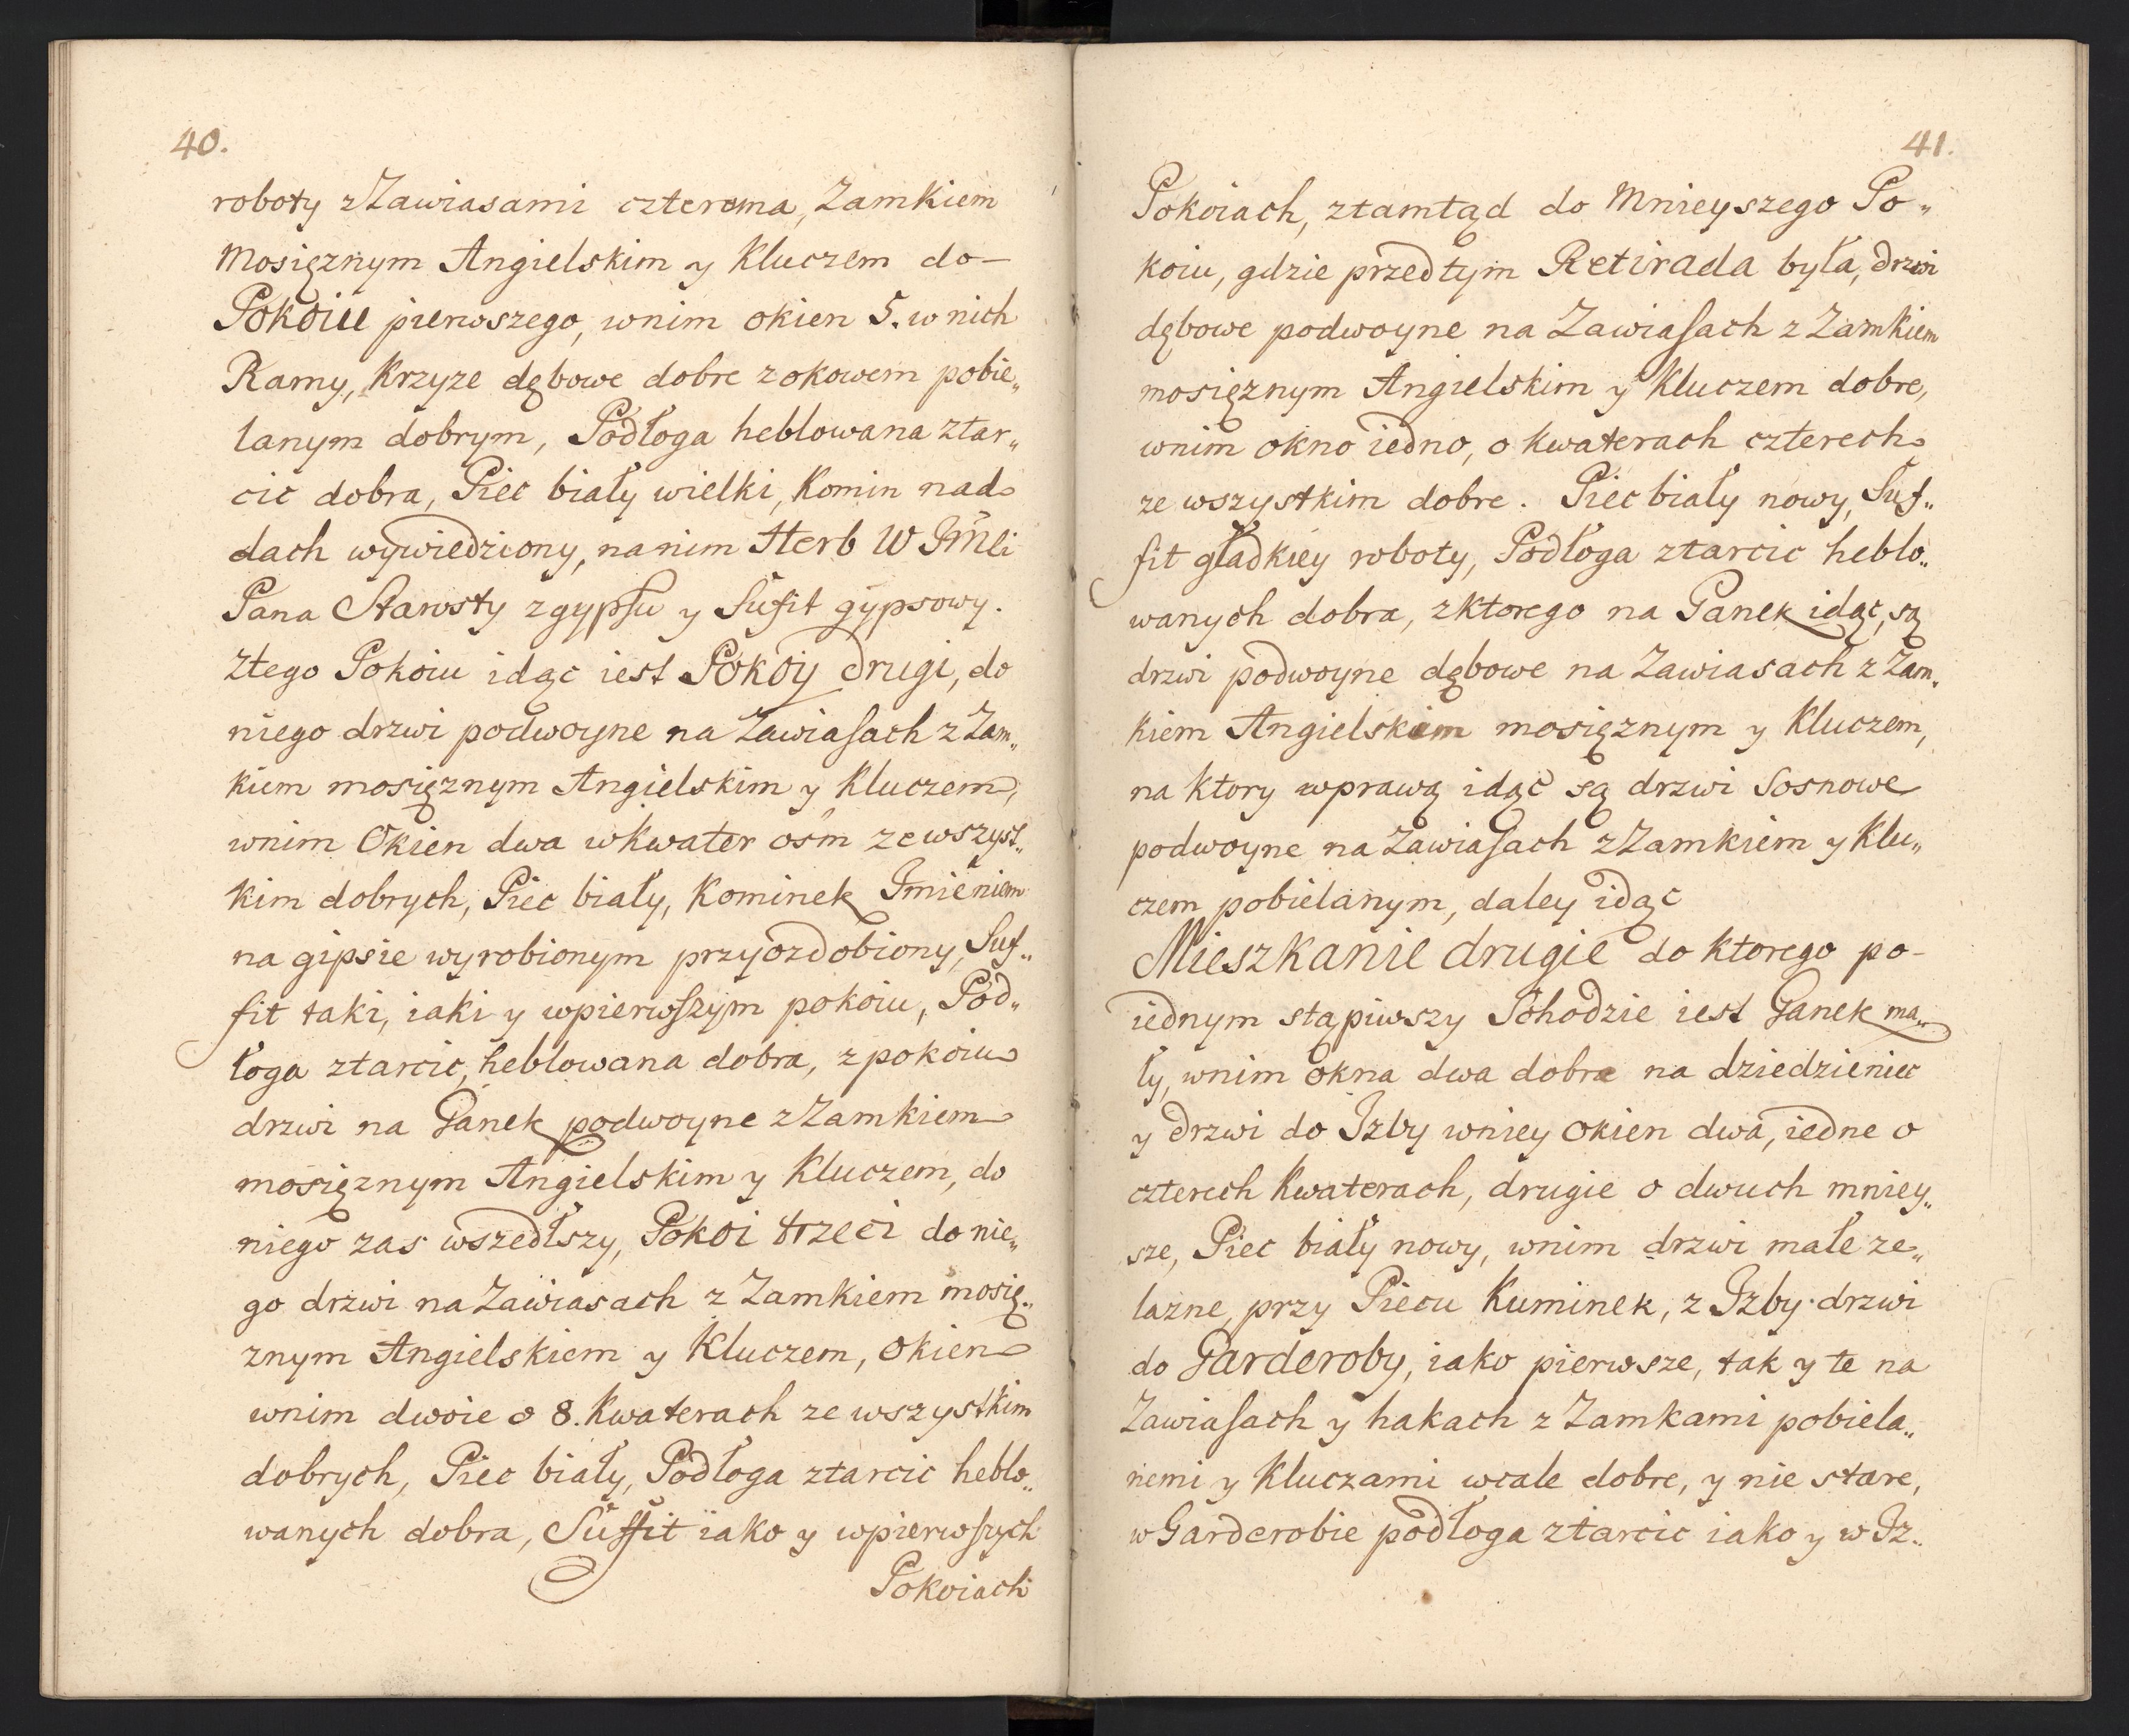 40.
roboty z Zawiasami czterema, Zamkiem
Mosiężnym Angielskim y Kluczem do—
Pokoiu pierwszego, wnim okien 5. w nich
Ramy, Krzyze dębowe dobre z okowem pobie„
lanym dobrym, Podłoga heblowana ztar„
cic dobra, Piec biały wielki, Komin nad
dach wywiedziony, na nim Herb W JMCi
Pana Starosty z gypsu y Sufit gypsowy.
Ztego Pokoiu idąc iest Pokóy drugi, do
niego drzwi podwoyne na Zawiasach z Zam„
kiem mosiężnym Angielskim y Kluczem,
wnim Okien dwa w kwater ośm ze wszyst„
kim dobrych, Piec biały, Kominek Jmieniem
na gipsie wyrobionym przyozdobiony, Suf„
fit taki, iaki y wpierwszym pokoiu, Pod„
łoga ztarcic, heblowana dobra, z pokoiu
drzwi na Ganek podwoyne z Zamkiem
mosiężnym Angielskim y Kluczem, do
niego zas wszedłszy, Pokoi trzeci do nie„
go drzwi na Zawiasach z Zamkiem mosię„
znym Angielskiem y Kluczem, okien
wnim dwoie o 8. Kwaterach ze wszystkim
dobrych, Piec biały, Podłoga ztarcic heblo„
wanych dobra, Suffit iako y wpierwszych
Pokoiach
41.
Pokoiach, ztamtąd do Mnieyszego Po„
koiu, gdzie przedtym Retirada była, drzwi
dębowe podwoyne na Zawiasach z Zamkiem
mosiężnym Angielskim y Kluczem dobre,
wnim okno iedno, o kwaterach czterech
ze wszystkim dobre. Piec biały nowy, Suf„
fit gładkiey roboty, Podłoga ztarcic heblo„
wanych dobra, zktorego na Ganek idąc, są
drzwi podwoyne dębowe na Zawiasach z Zam„
kiem Angielskim mosiężnym y Kluczem,
na ktory wprawą idąc są drzwi Sosnowe
podwoyne na Zawiasach z Zamkiem y Klu„
czem pobielanym, daley idąc
Mieszkanie drugie do ktorego po-
iednym stąpiwszy Schodzie iest Ganek ma„
ły, wnim okna dwa dobre na dziedziniec
y drzwi do Jzby wniey okien dwa, iedne o
czterech Kwaterach, drugie o dwuch mniey„
sze, Piec biały nowy, wnim drzwi małe ze„
lazne, przy Piecu Kuminek, z Jzby drzwi
do Garderoby, iako pierwsze, tak y te na
Zawiasach y hakach z Zamkami pobiela„
nemi y Kluczami wcale dobre, y nie stare,
w Garderobie podłoga ztarcic iako y w Jz„